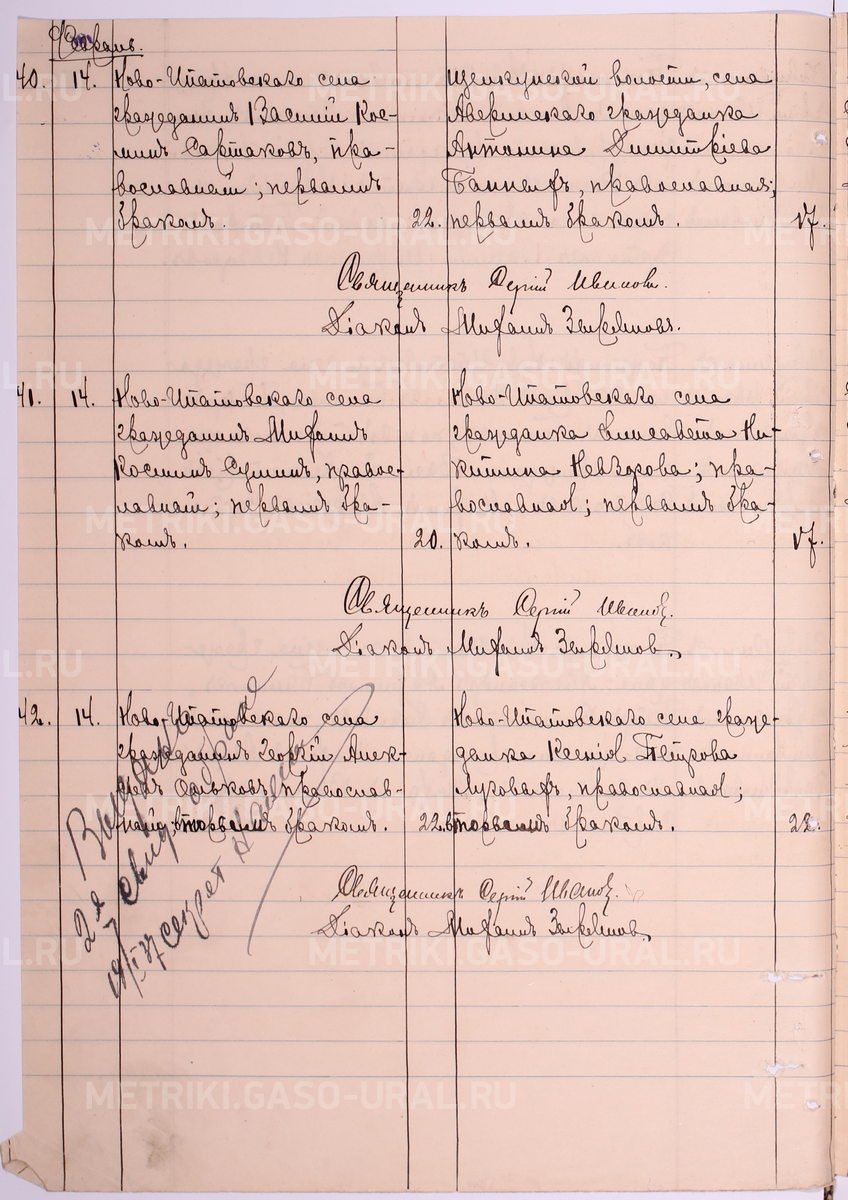 Февраль.
40. 14. Ново-Ипатовскаго села
гражданинъ Василій Кос-
минъ Сартаковъ, пра-
вославный; первымъ
бракомъ. 22.
Щелкунской волости, села
Аверинскаго гражданка
Антонина Димитріева
православная;
первымъ бракомъ. 17.
Священникъ Сергій Ивановъ.
Діаконъ Михаилъ
41. 14. Ново-Ипатовскаго села
гражданинъ Михаилъ
Косминъ Сушинъ, правос-
лавный; первымъ бра-
комъ. 20.
Ново-Ипатовскаго села
гражданка Елисавета Ни-
китина Невзорова; пра-
вославная; первымъ бра-
комъ. 17.
Священникъ Сергій Ивановъ.
Діаконъ Михаилъ
42. 14. Ново-Ипатовскаго села
гражданинъ Георгій Алек-
православ-
ный; вторымъ бракомъ. 22.
Ново-Ипатовскаго села граж-
данка Ксенія Петрова
православная;
вторымъ бракомъ. 22.
Священникъ Сергій Ивановъ.
Діаконъ Михаилъ
METRIKI.GASO-URAL.RU